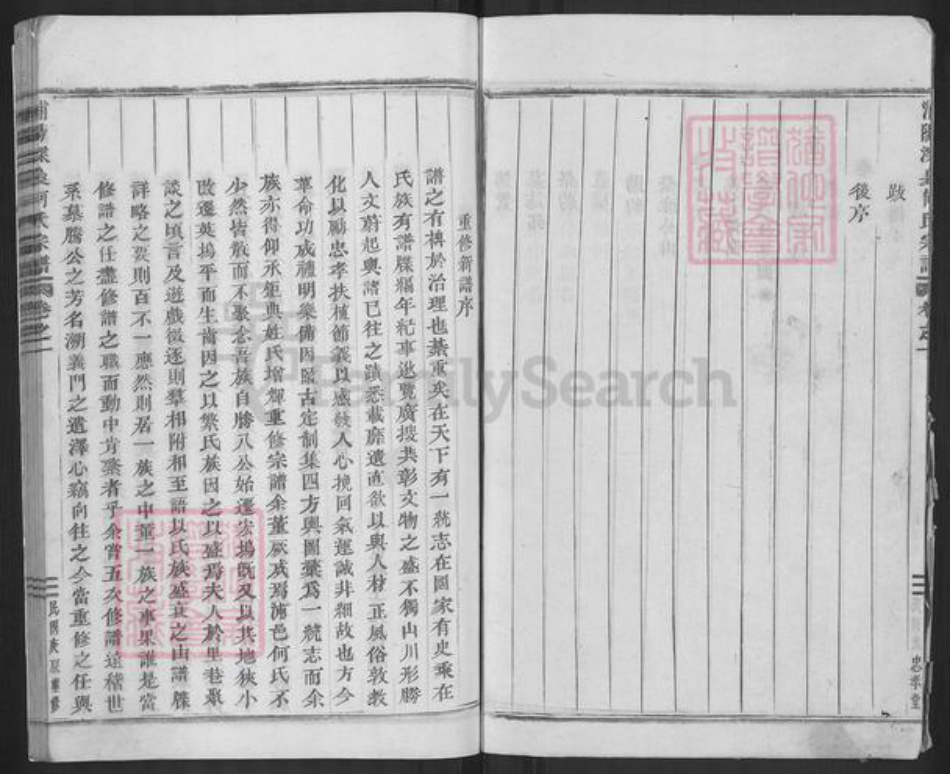 跋
後序
忠孝堂
重修新譜序
譜之有裨於治理也綦重矣在天下有一統志在國家有史乘在
氏族有譜牒編年紀事遐覽廣搜共彰文物之盛不獨山川形勝
人文蔚起與諸已往之蹟悉載靡遺直欲以興人材正風俗敦教
化以勵忠孝扶植節義以感發人心挽回氣運誠非細故也方今
革命功成禮明樂備因監古定制集四方輿圖彙為一統志而余
族亦得仰承鉅典姓氏增輝重修宗譜余董厥成焉浦邑何氏不
少然皆散而不聚念吾族自勝八公始遷宏塢既又以其地狹小
改遷英塢平而生齒因之以繁氏族因之以盛焉夫人於里巷聚
談之頃言及遊戲徵逐則羣相附和至語以氏族盛衰之由譜牒
詳畧之裂則百不一應然則居一族之中董一族之事果誰是當
修譜之任盡修譜之職而動中肯綮者乎余嘗五次修譜遠稽世
系慕騰公之芳名溯義門之遺澤心竊向往之今當重修之任與
宗譜 卷之一
民國 重修
FamilySearch